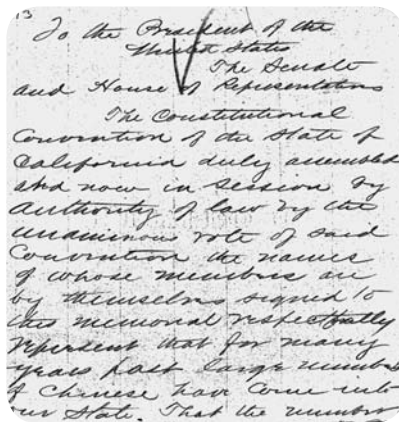 13
To the President of the
United States
The Senate
and House of Representatives
The Constitutional
Convention of the State of
California duly assembled
and now in session by
authority of law by the
unanimous vote of said
Convention the names
of whose members are
by themselves signed to
this memorial respectfully
represent that for many
years past large numbers
of Chinese have come into
our State. That the number